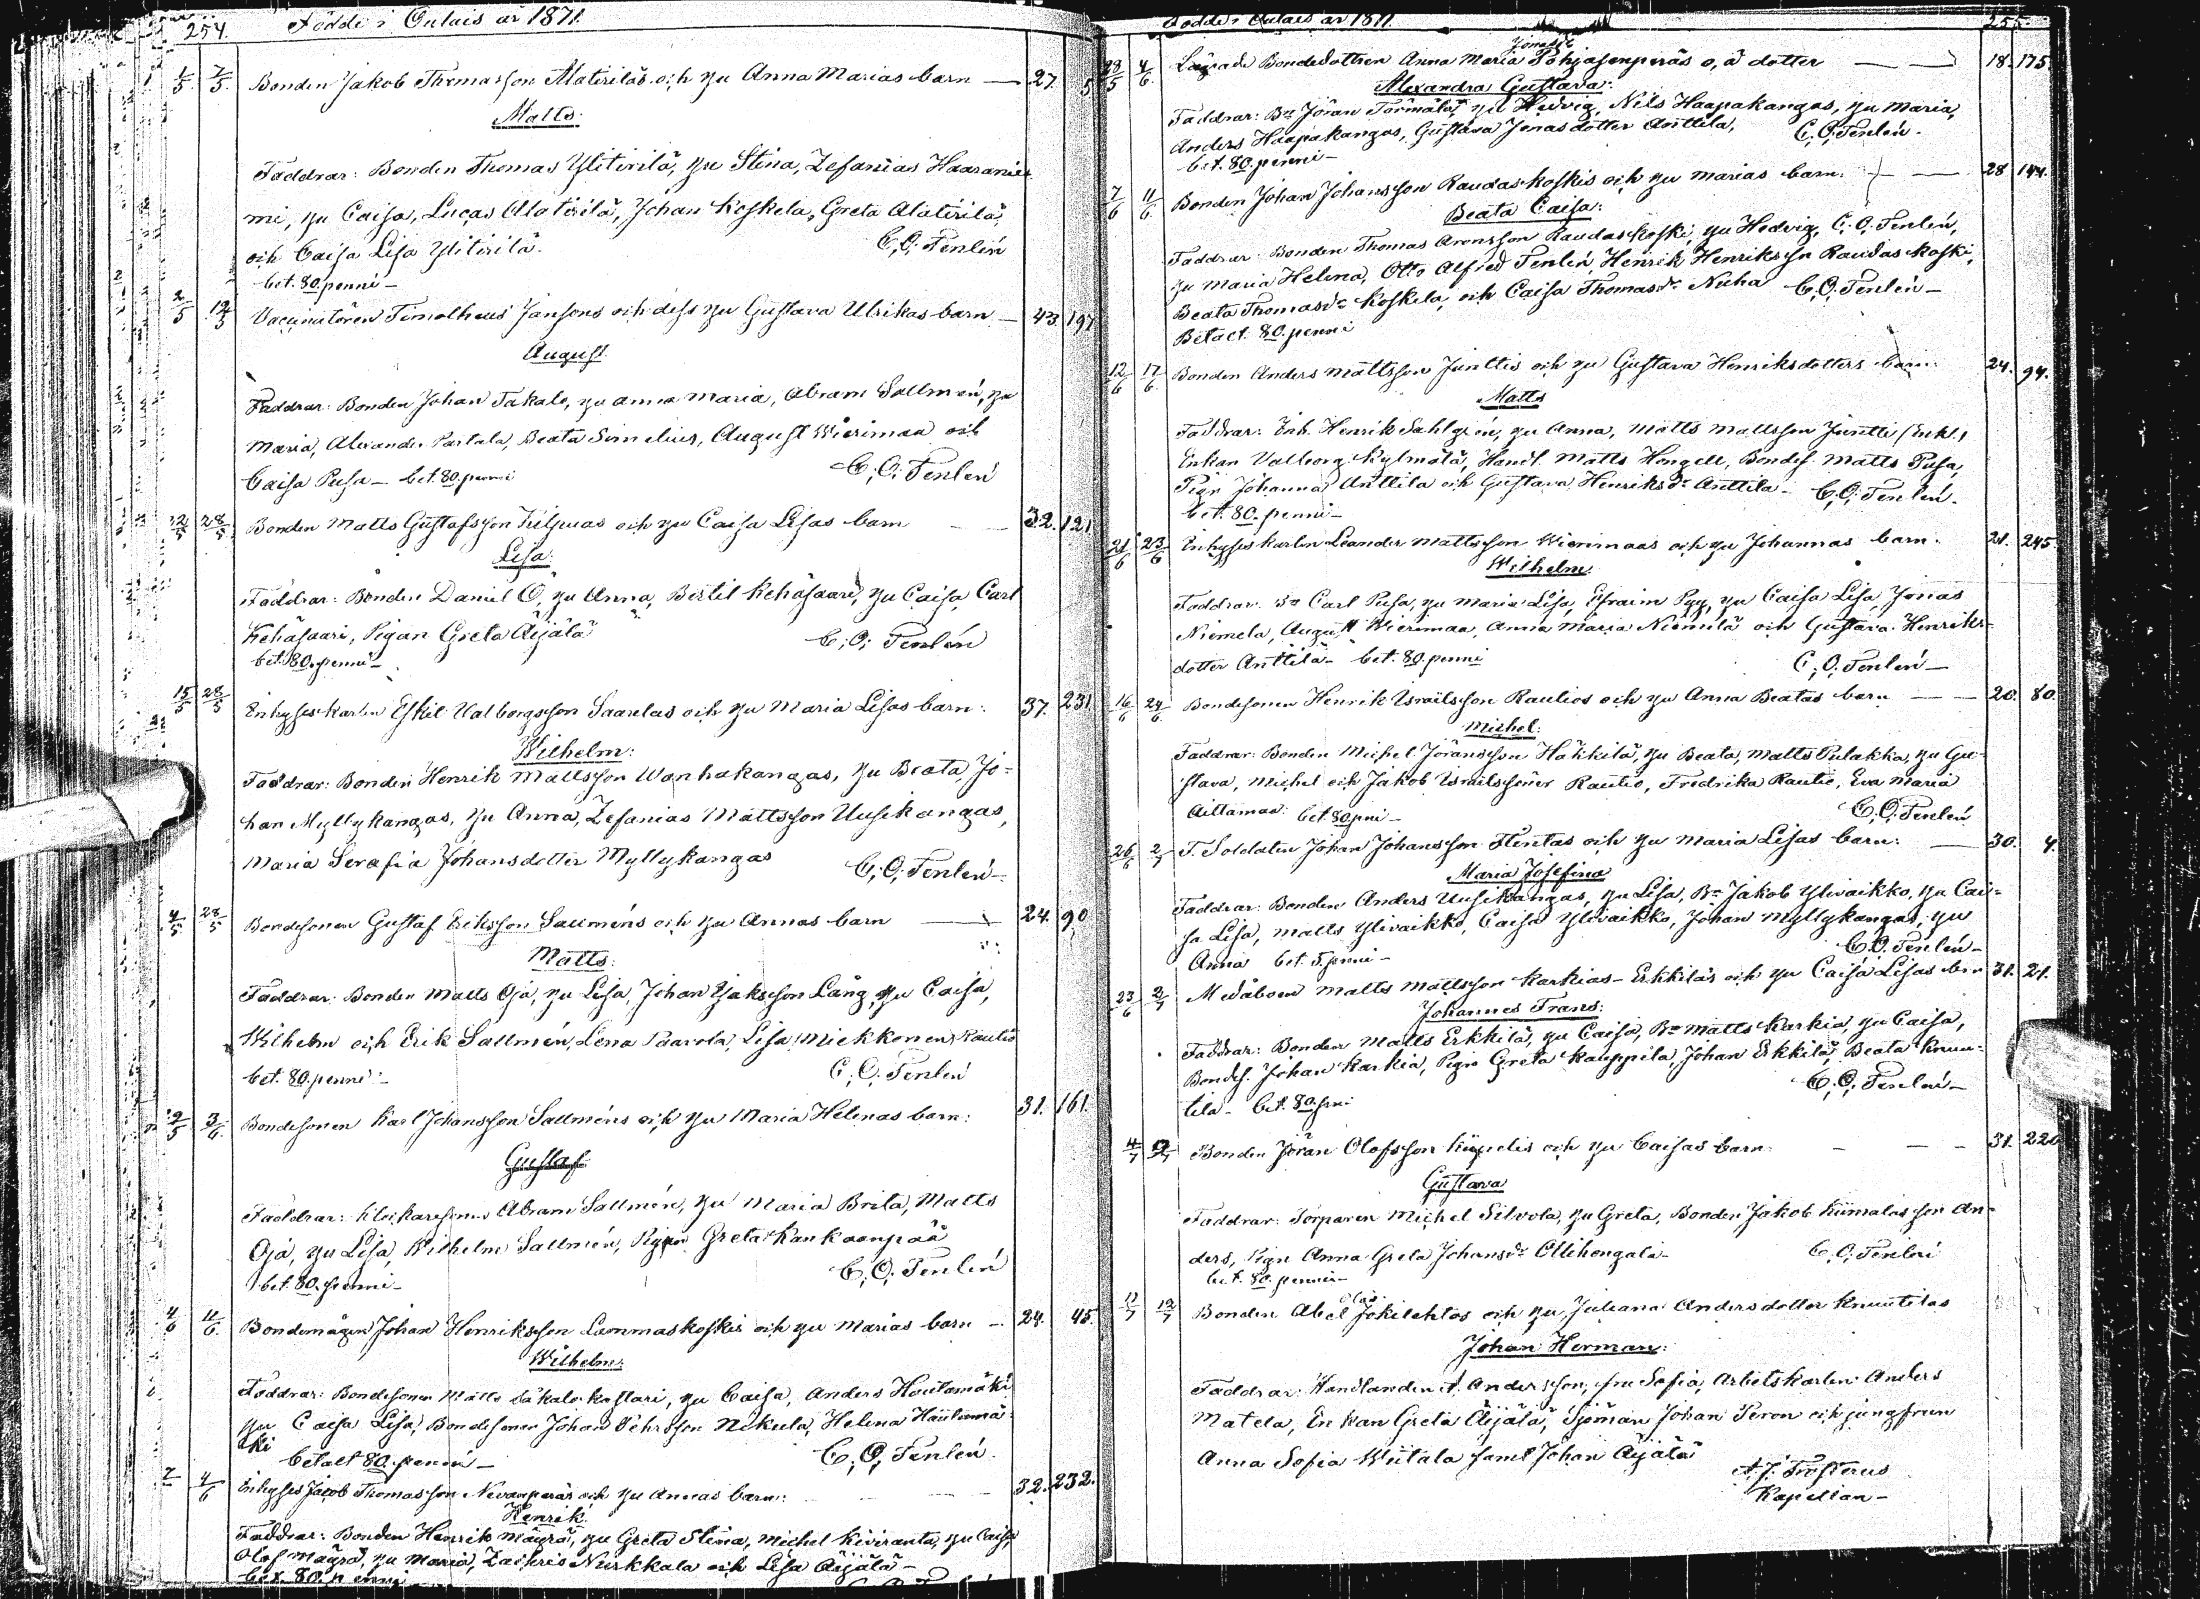 254. Födde i Oulais år 1871.
1/5 7/5 Bonden Jakob Thomasson Alatiriläs och hu Anna Marias barn — 27. 5
Matts.
Faddrar: Bonden Thomas Ylitirilä, hu Stina, Zefanias Haaranie-
mi, hu Caisa, Lucas Alatirilä, Johan Koskela, Greta Alatirilä,
och Caisa Lisa Ylitirilä. C. O. Tenlén
bet. 80. penni —
2/5 12/5 Vaccinatören Timotheus Jansons och dess hu Gustava Ulrikas barn — 43. 197
August.
Faddrar: Bonden Johan Takalo, hu Anna Maria, Abram Sallmén, hu
Maria, Alexander Partala, Beata Simelius, August Wierimaa och
Caisa Pusa — bet. 80. penni C. O. Tenlén
28/5 Bonden Matts Gustafsson Kilpuas och hu Caisa Lisas barn — 32. 121
Lisa.
Faddrar: Bonden Daniel O, hu Anna, Bertil Kehäsaari, hu Caisa, Carl
Kehäsaari, Pigan Greta Äijälä C. O. Tenlén
bet. 80. penni —
15/5 28/5 Inhyseskarlen Eskil Valborgsson Saarelas och hu Maria Lisas barn: 37. 231
Wilhelm:
Faddrar: Bonden Henrik Mattsson Wanhakangas, hu Beata, Jo-
han Myllykangas, hu Anna, Zefanias Mattsson Uusikangas,
Maria Serafia Johansdotter Myllykangas C. O. Tenlén —
4/5 28/5 Bondesonen Gustaf Eriksson Sallméns och hu Annas barn — 24. 90
Matts:
Faddrar: Bonden Matts Oja, hu Lisa, Johan Isaksson Lång, hu Caisa,
Wilhelm och Erik Sallmén, Lena Paavola, Lisa Miekkonen Rautio
bet. 80. penni — C. O. Tenlén
3/6 Bondesonen Karl Johansson Sallméns och hu Maria Helenas barn: 31. 161.
Gustaf.
Faddrar: Klockaresonen Abram Sallmén, hu Maria Brita, Matts
Oja, hu Lisa, Wilhelm Sallmén, Pigan Greta Kankaanpää
bet. 80. penni — C. O. Tenlén
4/6 11/6 Bondemågen Johan Henriksson Lammaskoskis och hu Marias barn — 24. 45.
Wilhelm:
Faddrar: Bondesonen Matts, hu Caisa, Anders Hautamäki
hu Caisa Lisa, Bondesonen Johan Pehrsson Nikula, Helena Hautamä-
ki
betalt 80. penni — C. O. Tenlén.
4/6 Inhyses Jacob Thomasson Nevanperäs och hu Annas barn: 32. 232.
Henrik.
Faddrar: Bonden Henrik Mäyrä, hu Greta Stina, Michel Kiviranta, hu Caisa,
Olof Mäyrä, hu Maria, Zachris Nurkkala och Lisa Äijälä —
bet. 80. penni
Födde i Oulais år 1871. 255.
28/5 4/6 Lägrade Bondedottren Anna Maria Jonasdr Pohjasenperäs o, ä dotter — 18. 175.
Alexandra Gustava:
Faddrar: Bn Jöran Törmälä, hu Hedvig, Nils Haapakangas, hu Maria,
Anders Haapakangas, Gustava Jonasdotter Anttila, C. O. Tenlén.
bet. 80. penni —
7/6 11/6 Bonden Johan Johansson Raudaskoskis och hu Marias barn. — 28 144.
Beata Caisa:
Faddrar: Bonden Thomas Aronsson Raudaskoski, hu Hedvig, C. O. Tenlén,
hu Maria Helena, Otto Alfred Tenlén, Henrik Henriksson Raudaskoski,
Beata Thomasdr Koskela, och Caisa Thomasdr C. O. Tenlén —
Betalt 80. penni
12/6 17/6 Bonden Anders Mattsson Junttis och hu Gustava Henriksdotters barn: 24. 94.
Matts
Faddrar: Enk. Henrik Sahlgrén, hu Anna, Matts Mattsson Juntti (Enkl.)
Enkan Valborg Kylmälä, Handl. Matts Hongell, Bondes. Matts Pusa,
Pign Johanna Anttila och Gustava Henriksdr Anttila — C. O. Tenlén.
bet. 80. penni —
21/6 23/6 Inhyseskarlen Leander Mattsson Wierimaas och hu Johannas barn. 21. 245.
Wilhelm.
Faddrar: Bn Carl Pusa, hu Maria Lisa, Efraim Pyy, hu Caisa Lisa, Jonas
Niemelä, August Wierimaa, Anna Maria Niemelä och Gustava Henriks-
dotter Anttila — bet. 80. penni C. O. Tenlén —
16/6 24/6 Bondesonen Henrik Israelsson Rautios och hu Anna Beatas barn — 20. 80.
Michel:
Faddrar: Bonden Michel Jöransson Häkkilä, hu Beata, Matts Pulakka, hu Gu-
stava, Michel och Jakob Israelssöner Rautio, Fredrika Rautio, Eva Maria
Aittamaa: bet. 80 pni — C. O. Tenlén
26/6 2/7 T. Soldaten Johan Johansson Flentas och hu Maria Lisas barn: — 30. 4.
Maria Josefina
Faddrar: Bonden Anders Uusikangas, hu Lisa, Bn Jakob Ylivaikko, hu Cai-
sa Lisa, Matts Ylivaikko, Caisa Ylivaikko, Johan Myllykangas, hu
Anna bet. penni — C. O. Tenlén —
23/6 2/7 Medåboen Matts Mattsson Karkias-Erkkiläs och hu Caisa Lisas barn 31. 21.
Johannes Frans:
Faddrar: Bonden Matts Erkkilä, hu Caisa, Bn Matts Karkia, hu Caisa,
Bondes. Johan Karkia, Pign Greta Kauppila, Johan Erkkilä, Beata Knuu-
tila — bet. 80. pni C. O. Tenlén —
4/7 9/7 Bonden Jöran Olofsson och hu Caisas barn: — 31. 220
Gustava
Faddrar: Torparen Michel Silvola, hu Greta, Bonden Jakob Kiimalas son An-
ders, Pign Anna Greta Johansdr Ollikengala — C. O. Tenlén
bet. 80. penni —
11/7 12/7 Bonden Abel Jokilehtos och hu Juliana Andersdotter Knuutilas
Johan Herman:
Faddrar: Handlanden A. Andersson, fru Sofia, Arbetskarlen Anders
Matela, Enkan Greta Äijälä, Sjöman Johan Peron och jungfrun
Anna Sofia Wiitala samt Johan Äijälä
A. J. Frosterus
Kapellan —